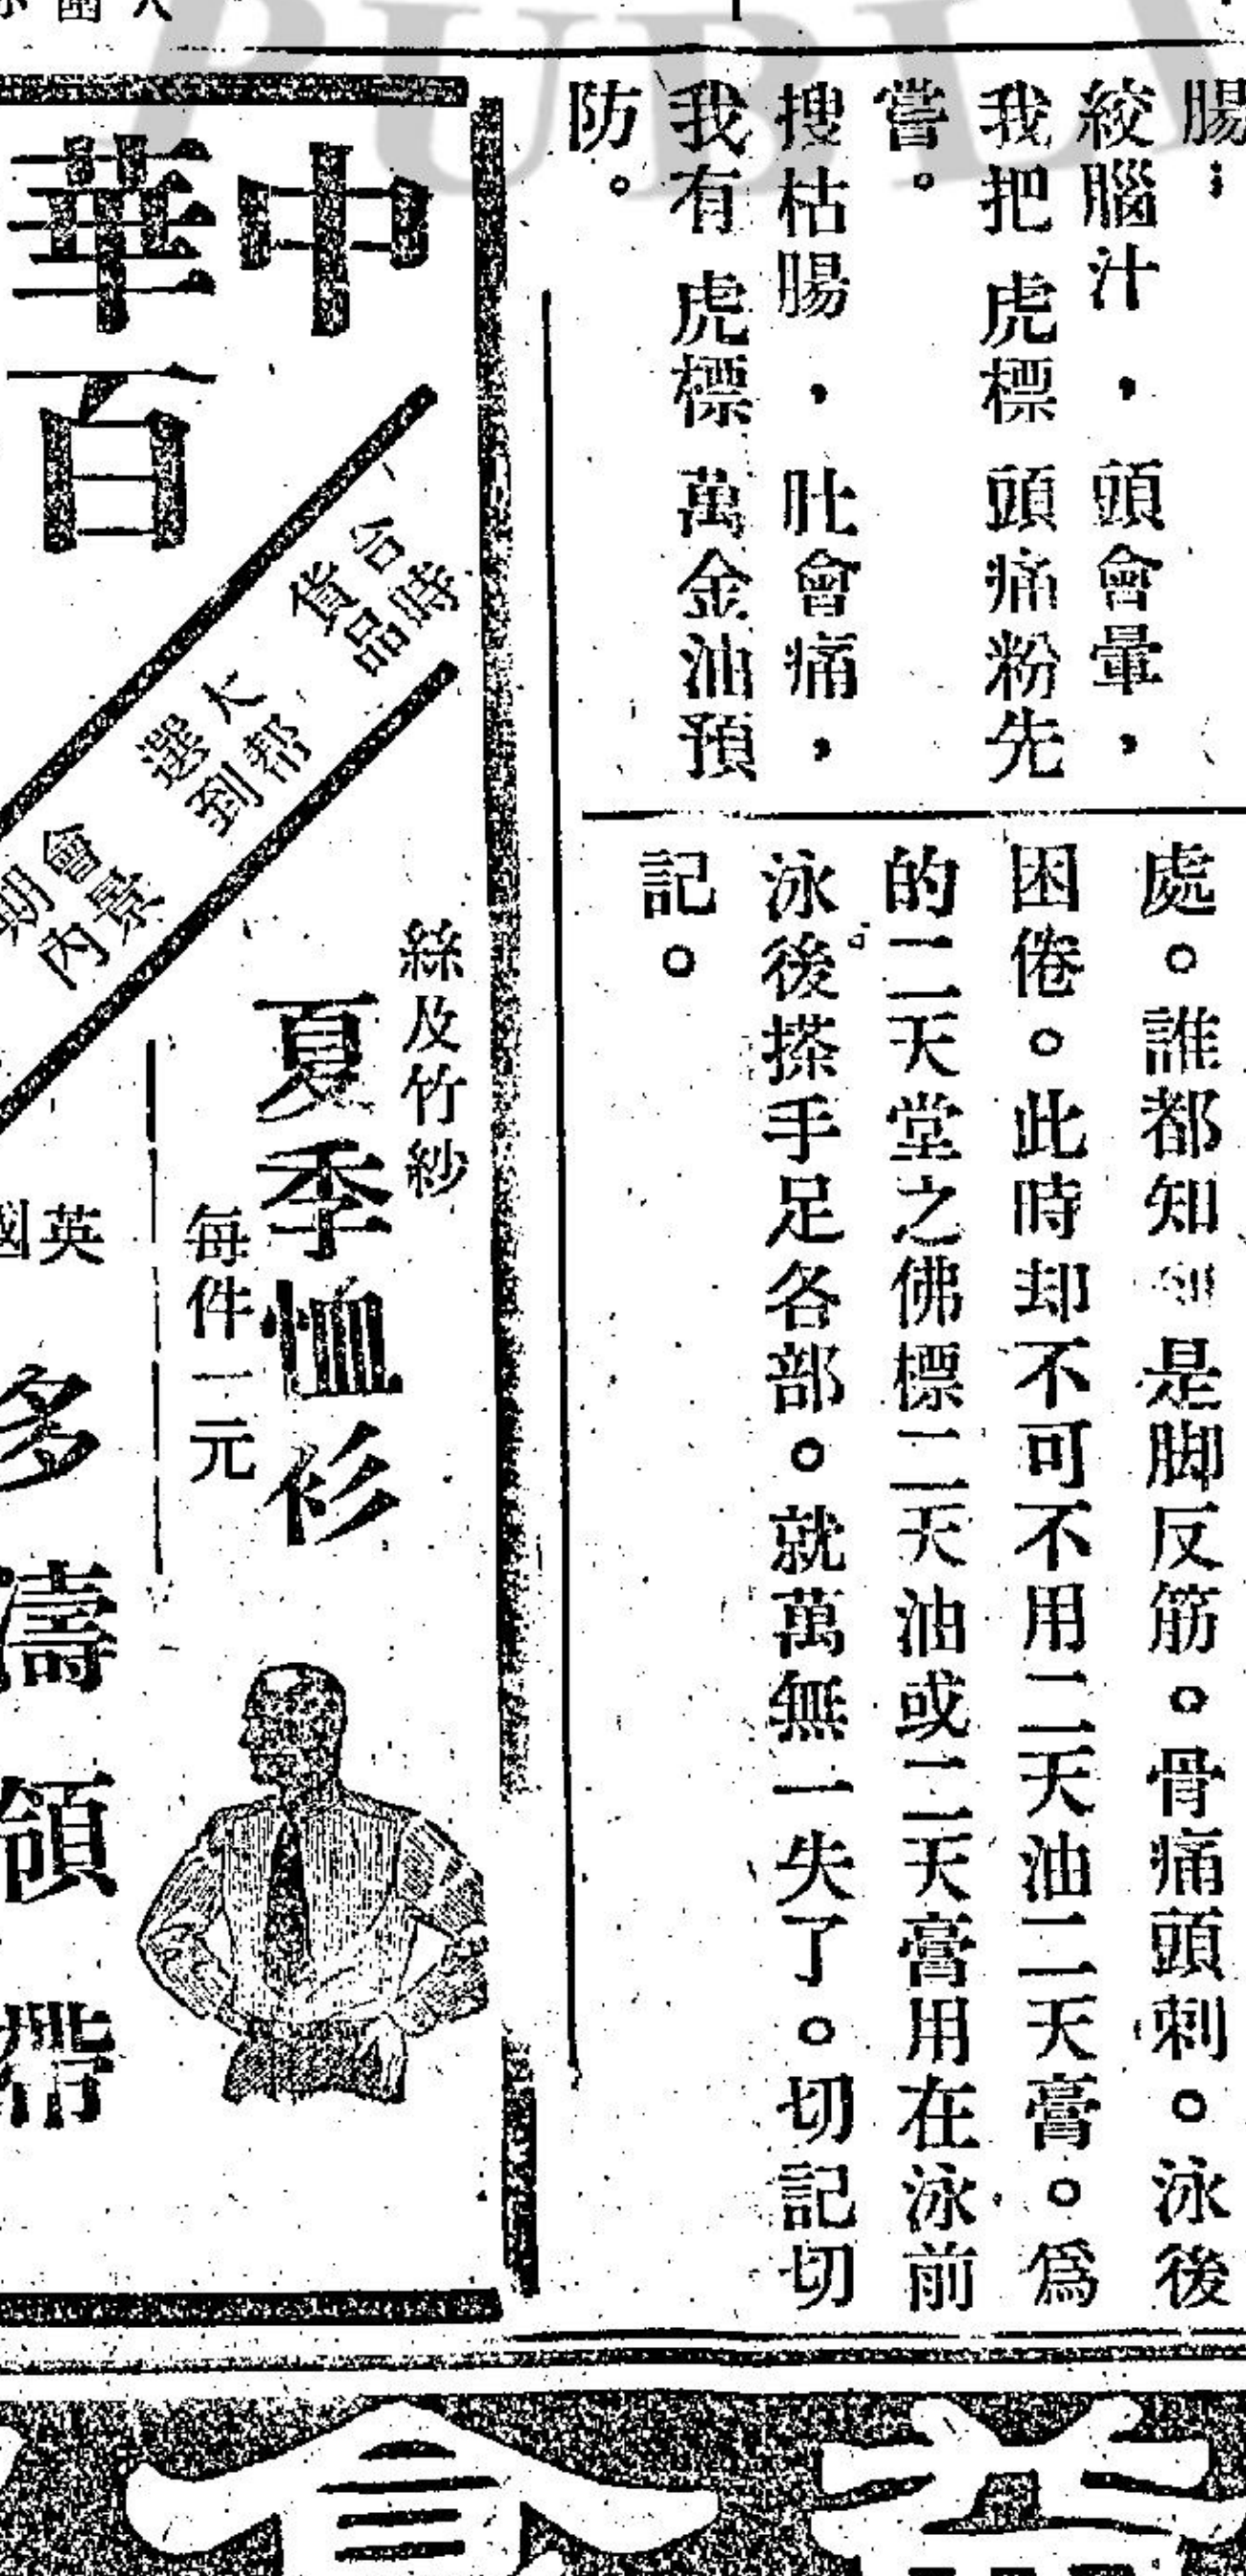 腸；
絞腦汁，頭會暈，
我把 虎標 頭痛粉先
嘗。
搜枯腸，肚會痛，
我有 虎標 萬金油預
防。
處。誰都知 是脚反筋。骨痛頭刺。泳後
困倦。此時却不可不用二天油二天膏。爲
的二天堂之佛標二天油或二天膏用在泳前
泳後搽手足各部。就萬無一失了。切記切
記。
中
華百
時
合
品
貨
大帮
選到
會景
期內
絲及竹紗
夏季恤衫
每件一元
英國
多濤領帶
PUBL